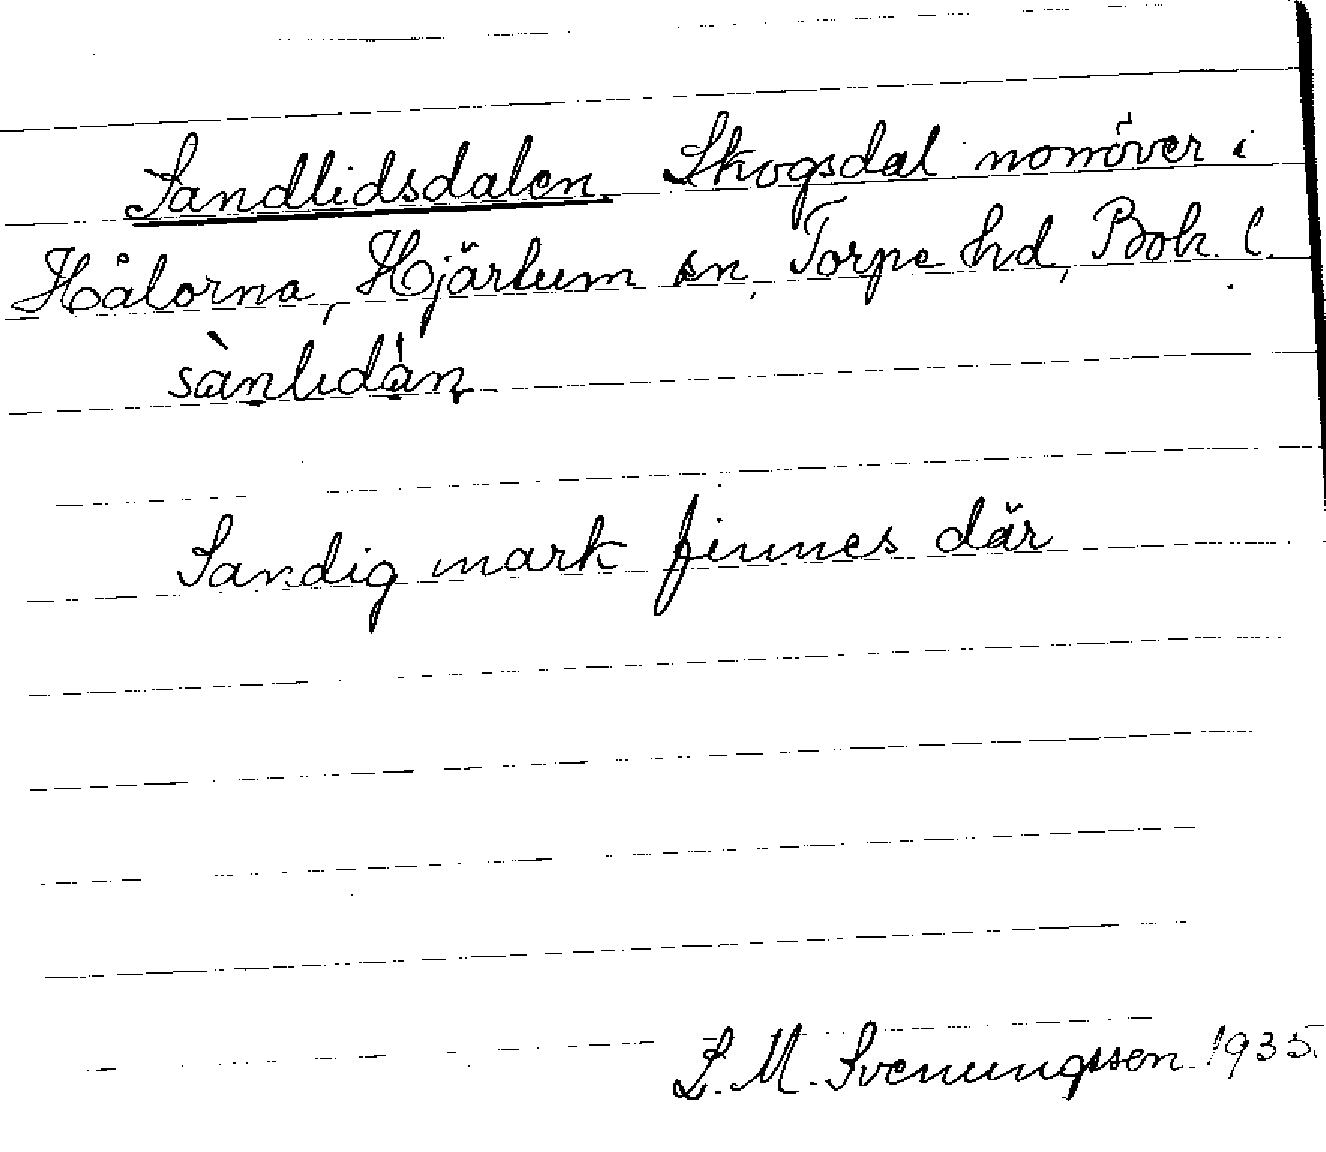 Sandlidsdalen Skogsdal norröver i
Hålorna, Hjärtum sn, Torpe hd, Boh. l.
sànlidàn
Sandig mark finnes där
S. M. Svenungssen 1935.